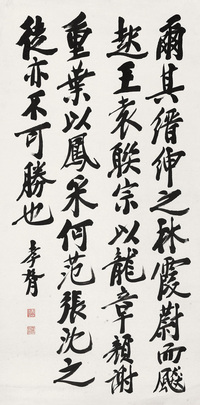 爾其縉紳之林霞蔚而飈
起王袁聯宗以龍章顏謝
重葉以鳳采何范張沈之
徒亦不可勝也
孝胥